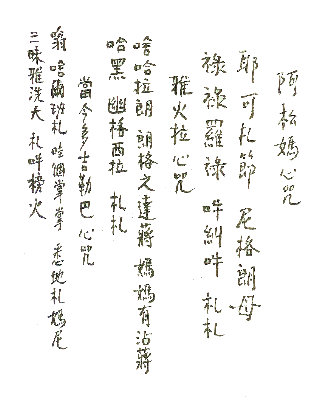 阿松媽心咒
耶可札節 尼格朗母
祿祿羅祿 吽糾吽 札札
雅火拉心咒
唅哈拉朗 朗格之達蔣 媽媽有沾蔣
哈黑 幽格酉拉 札札
當今多吉勒巴心咒
嗡 班札 悉地札媽尼
三昧雅洗大 札吽榜火